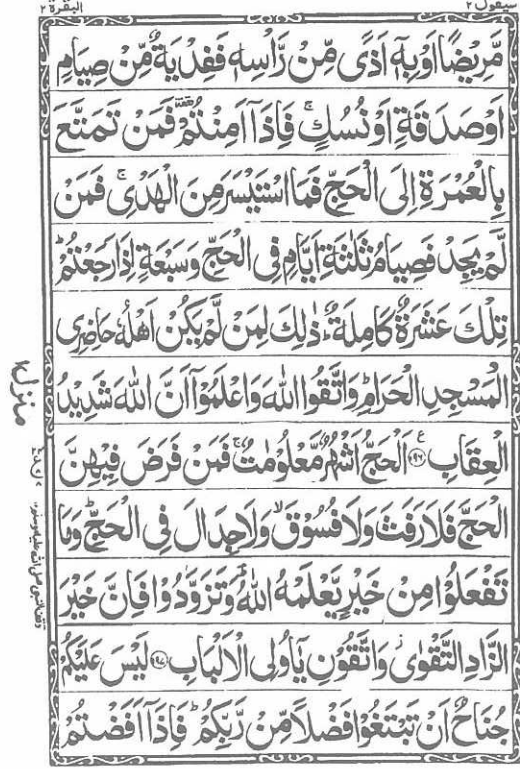 سيقول ٢ البقرة ٢
مَّرِيْضًا اَوْ بِهٖۤ اَذًى مِّنْ رَّاْسِهٖ فَفِدْيَةٌ مِّنْ صِيَامٍ
اَوْ صَدَقَةٍ اَوْ نُسُكٍ ۚ فَاِذَاۤ اَمِنْتُمْ ۥ فَمَنْ تَمَتَّعَ
بِالْعُمْرَةِ اِلَى الْحَجِّ فَمَا اسْتَيْسَرَ مِنَ الْهَدْيِ ۚ فَمَنْ
لَّمْ يَجِدْ فَصِيَامُ ثَلٰثَةِ اَيَّامٍ فِى الْحَجِّ وَسَبْعَةٍ اِذَا رَجَعْتُمْ ؕ
تِلْكَ عَشَرَةٌ كَامِلَةٌ ؕ ذٰلِكَ لِمَنْ لَّمْ يَكُنْ اَهْلُهٗ حَاضِرِى
الْمَسْجِدِ الْحَرَامِ ؕ وَاتَّقُوا اللّٰهَ وَاعْلَمُوْۤا اَنَّ اللّٰهَ شَدِيْدُ
الْعِقَابِ ﴿۱۹۶﴾ ع اَلْحَجُّ اَشْهُرٌ مَّعْلُوْمٰتٌ ۚ فَمَنْ فَرَضَ فِيْهِنَّ
الْحَجَّ فَلَا رَفَثَ وَلَا فُسُوْقَ ۙ وَلَا جِدَالَ فِى الْحَجِّ ؕ وَمَا
تَفْعَلُوْا مِنْ خَيْرٍ يَّعْلَمْهُ اللّٰهُ ؕ وَتَزَوَّدُوْا فَاِنَّ خَيْرَ
الزَّادِ التَّقْوٰى ۫ وَاتَّقُوْنِ يٰۤاُولِى الْاَلْبَابِ ﴿۱۹۷﴾ لَيْسَ عَلَيْكُمْ
جُنَاحٌ اَنْ تَبْتَغُوْا فَضْلًا مِّنْ رَّبِّكُمْ ؕ فَاِذَاۤ اَفَضْتُمْ
منزل ۱
وقف النبي صلى الله عليه وسلم